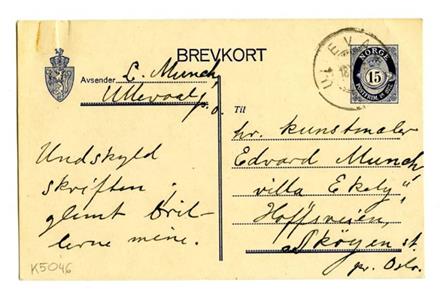 BREVKORT
Avsender L. Munch,
Ullevaal
p.o.
NORGE
15
Til
hr. kunstmaler
Edvard Munch
villa Ekely",
Hoffsveien,
Skøyen st.
pr. Oslo.
Undskyld
skriften,
glemt bril-
lerne mine.
K5046